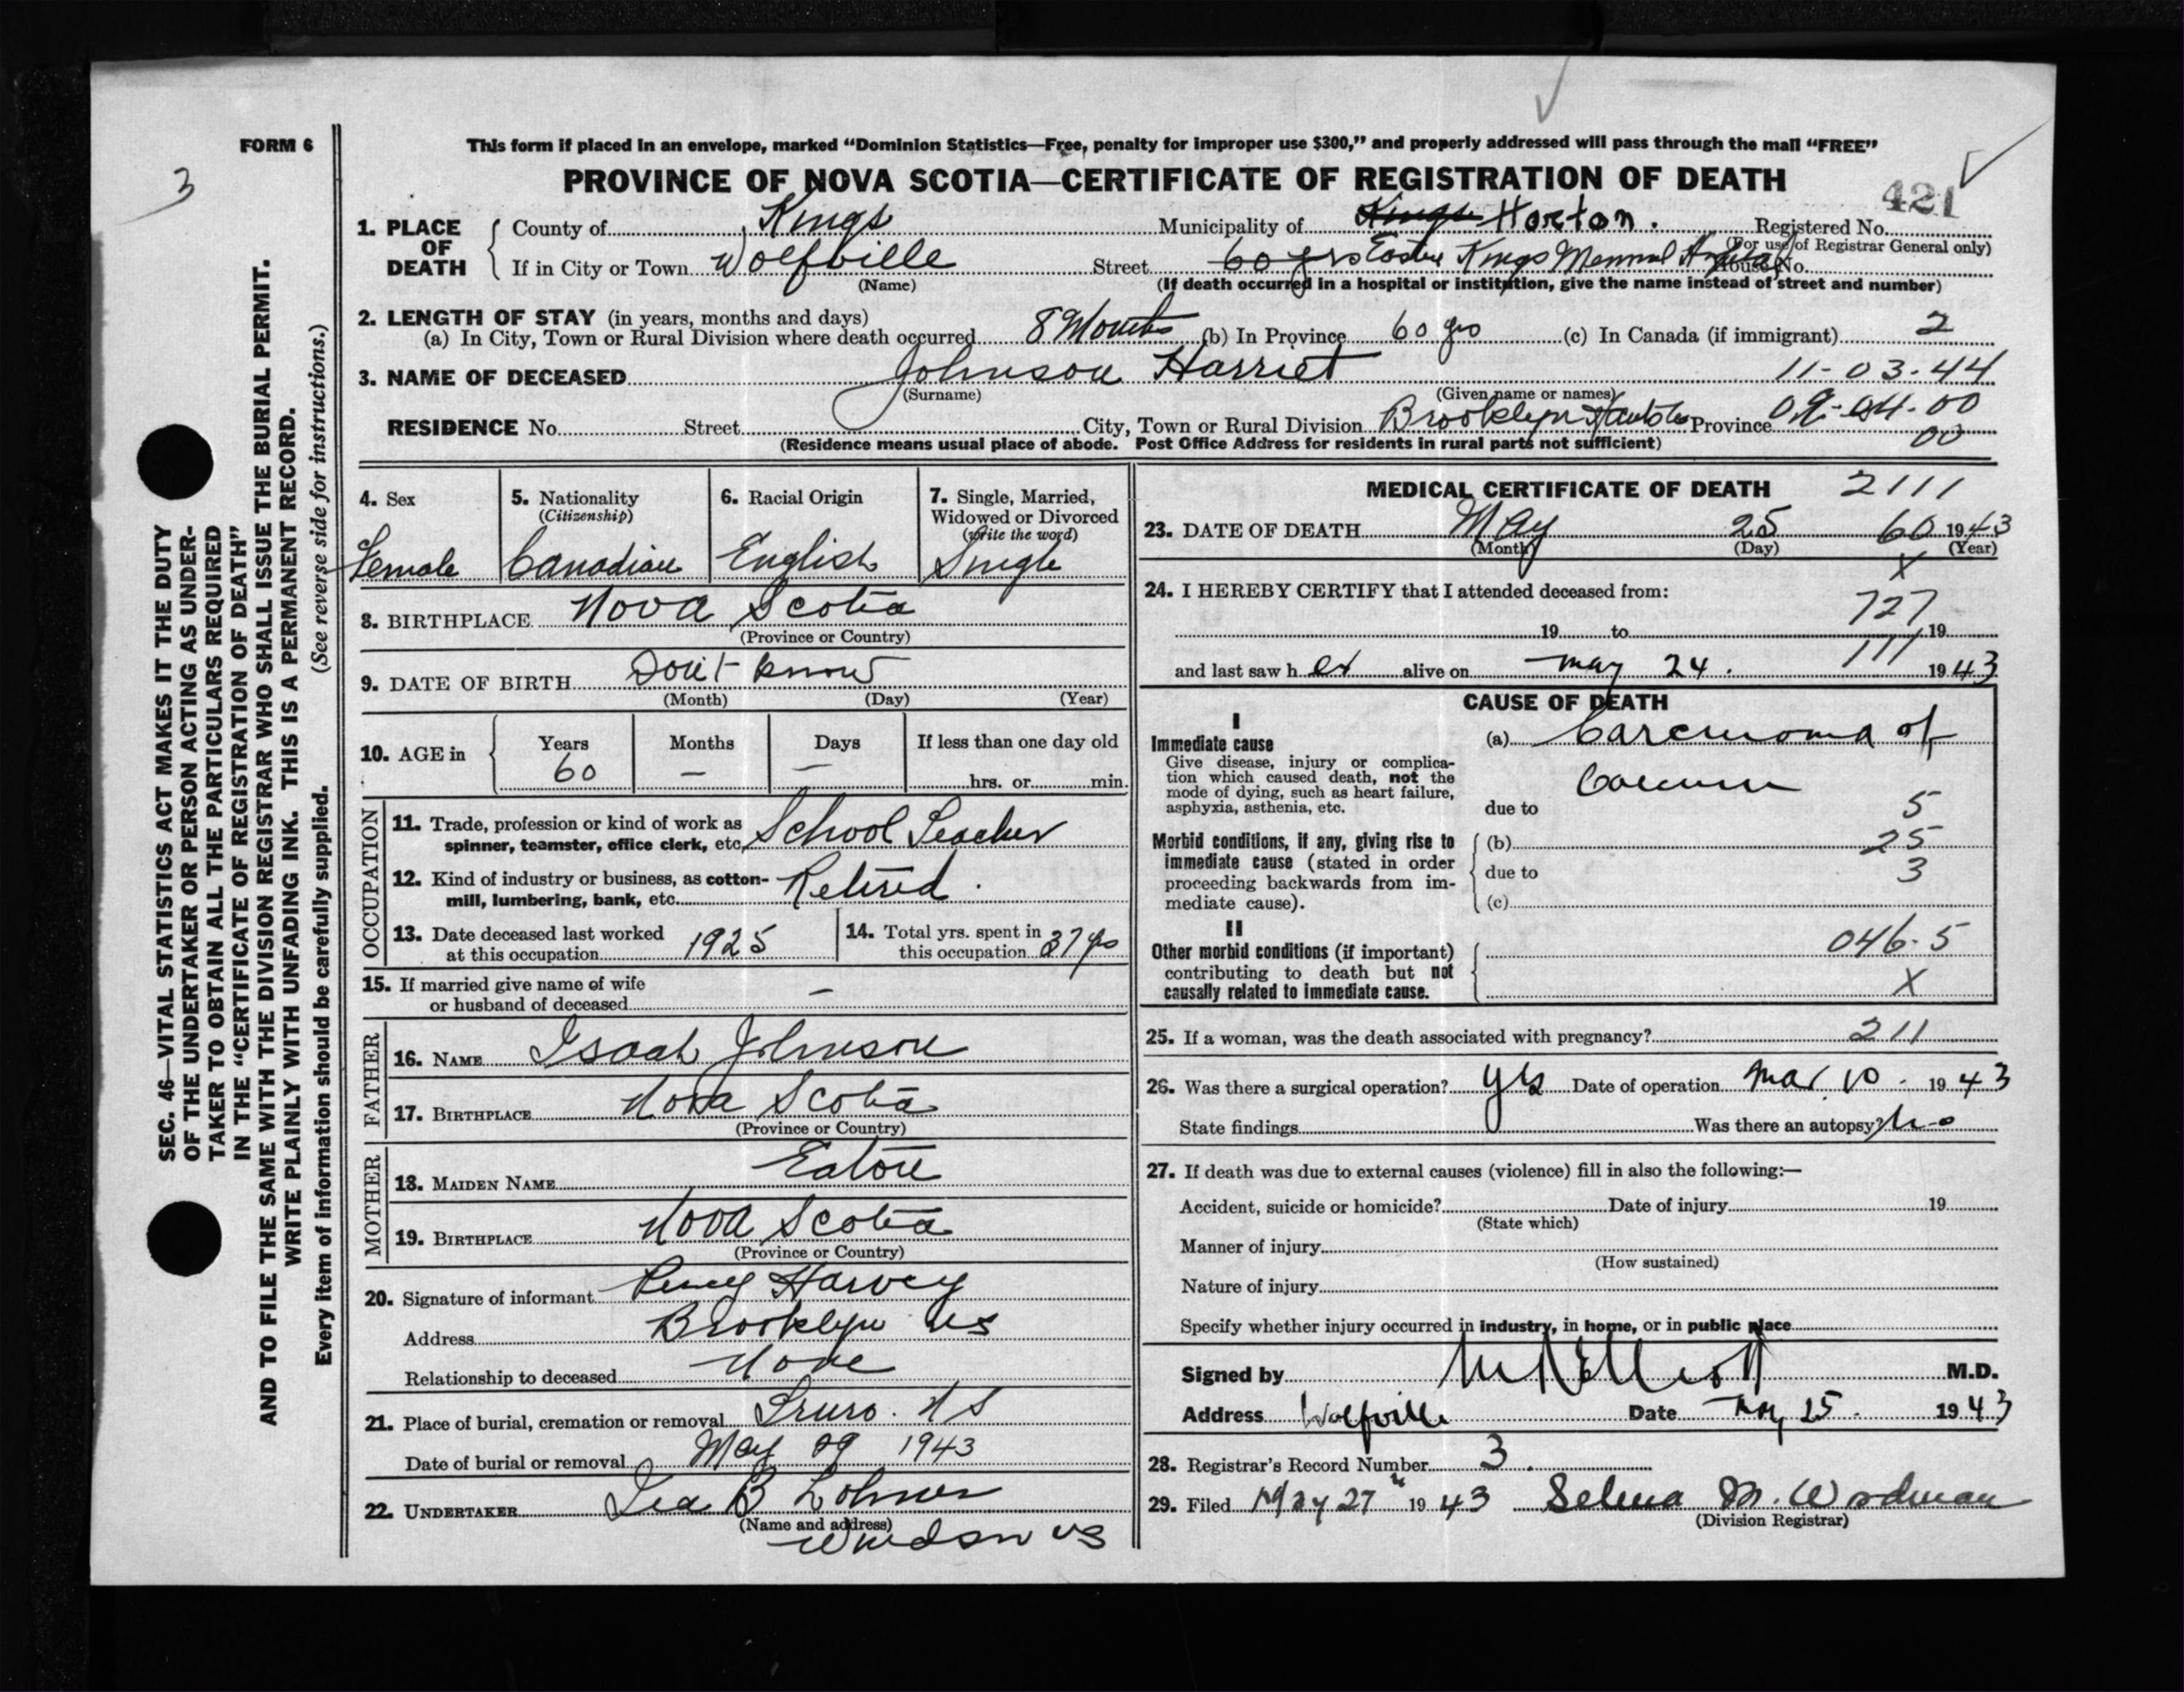 FORM 6
3
This form if placed in an envelope, marked “Dominion Statistics—Free, penalty for improper use $300,” and properly addressed will pass through the mail “FREE”
PROVINCE OF NOVA SCOTIA—CERTIFICATE OF REGISTRATION OF DEATH
421
1. PLACE OF DEATH
County of Kings Municipality of Kings Horton. Registered No.
(For use of Registrar General only)
If in City or Town Wolfville Street 60 yrs Eastern Kings Memorial Hospital House No.
(Name) (If death occurred in a hospital or institution, give the name instead of street and number)
2. LENGTH OF STAY (in years, months and days)
(a) In City, Town or Rural Division where death occurred 8 Months (b) In Province 60 yrs (c) In Canada (if immigrant) 2
3. NAME OF DECEASED Johnson Harriet 11-03-44
(Surname) (Given name or names)
RESIDENCE No. Street City, Town or Rural Division Brooklyn Hants Co Province 09-04-00
00
(Residence means usual place of abode. Post Office Address for residents in rural parts not sufficient)
4. Sex
Female
5. Nationality
(Citizenship)
Canadian
6. Racial Origin
English
7. Single, Married,
Widowed or Divorced
(write the word)
Single
8. BIRTHPLACE Nova Scotia
(Province or Country)
9. DATE OF BIRTH Don't know
(Month) (Day) (Year)
10. AGE in
Years Months Days If less than one day old
60 — — hrs. or min.
OCCUPATION
11. Trade, profession or kind of work as
spinner, teamster, office clerk, etc. School Teacher
12. Kind of industry or business, as cotton-
mill, lumbering, bank, etc. Retired.
13. Date deceased last worked
at this occupation 1925
14. Total yrs. spent in
this occupation 37 yrs
15. If married give name of wife
or husband of deceased —
FATHER
16. NAME Isaah Johnson
17. BIRTHPLACE Nova Scotia
(Province or Country)
MOTHER
18. MAIDEN NAME Eaton
19. BIRTHPLACE Nova Scotia
(Province or Country)
20. Signature of informant Percy Harvey
Address Brooklyn NS
Relationship to deceased None
21. Place of burial, cremation or removal Truro. N S
Date of burial or removal May 29 1943
22. UNDERTAKER B
(Name and address)
Windsor NS
MEDICAL CERTIFICATE OF DEATH 2111
23. DATE OF DEATH May 25 60 1943
(Month) (Day) (Year)
X
24. I HEREBY CERTIFY that I attended deceased from:
727
19 to 19
111
and last saw her alive on may 24. 1943
CAUSE OF DEATH
I
Immediate cause
Give disease, injury or complica-
tion which caused death, not the
mode of dying, such as heart failure,
asphyxia, asthenia, etc.
(a) Carcinoma of
Caecum
due to 5
Morbid conditions, if any, giving rise to
immediate cause (stated in order
proceeding backwards from im-
mediate cause).
(b) 25
due to 3
(c)
II
Other morbid conditions (if important)
contributing to death but not
causally related to immediate cause.
046.5
X
25. If a woman, was the death associated with pregnancy? 211
26. Was there a surgical operation? yes Date of operation Mar. 10. 1943
State findings Was there an autopsy? No
27. If death was due to external causes (violence) fill in also the following:—
Accident, suicide or homicide? Date of injury 19
(State which)
Manner of injury
(How sustained)
Nature of injury
Specify whether injury occurred in industry, in home, or in public place
Signed by Elliott M.D.
Address Wolfville Date May 25. 1943
28. Registrar's Record Number 3.
29. Filed May 27 1943 Selma M. Woodman
(Division Registrar)
SEC. 46—VITAL STATISTICS ACT MAKES IT THE DUTY
OF THE UNDERTAKER OR PERSON ACTING AS UNDER-
TAKER TO OBTAIN ALL THE PARTICULARS REQUIRED
IN THE “CERTIFICATE OF REGISTRATION OF DEATH”
AND TO FILE THE SAME WITH THE DIVISION REGISTRAR WHO SHALL ISSUE THE BURIAL PERMIT.
WRITE PLAINLY WITH UNFADING INK. THIS IS A PERMANENT RECORD.
Every item of information should be carefully supplied. (See reverse side for instructions.)